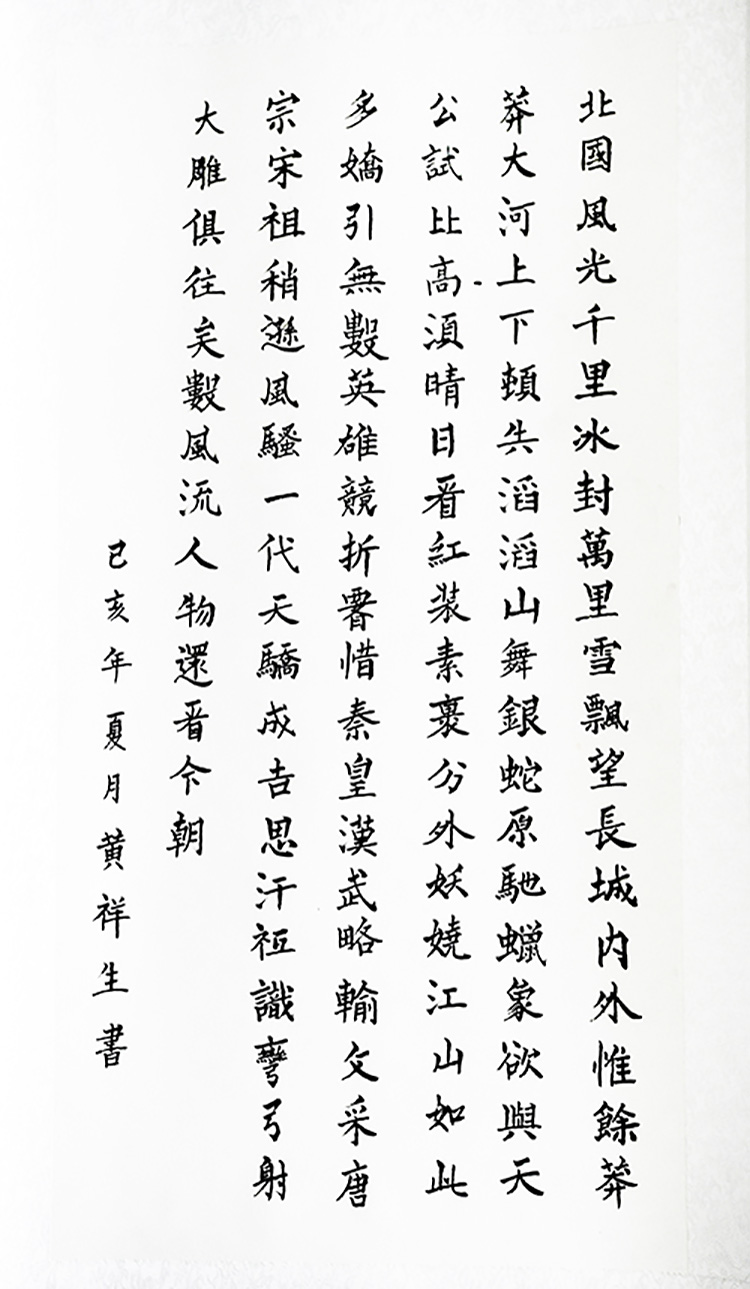 北國風光千里冰封萬里雪飄望長城内外惟餘莽
莽大河上下頓失滔滔山舞銀蛇原馳蠟象欲與天
公試比高須晴日看紅装素裹分外妖嬈江山如此
多嬌引無數英雄競折署惜秦皇漢武略輸文采唐
宗宋祖稍遜風騷一代天驕成吉思汗祗識彎弓射
大雕俱往矣數風流人物還看今朝
已亥年夏月黄祥生書